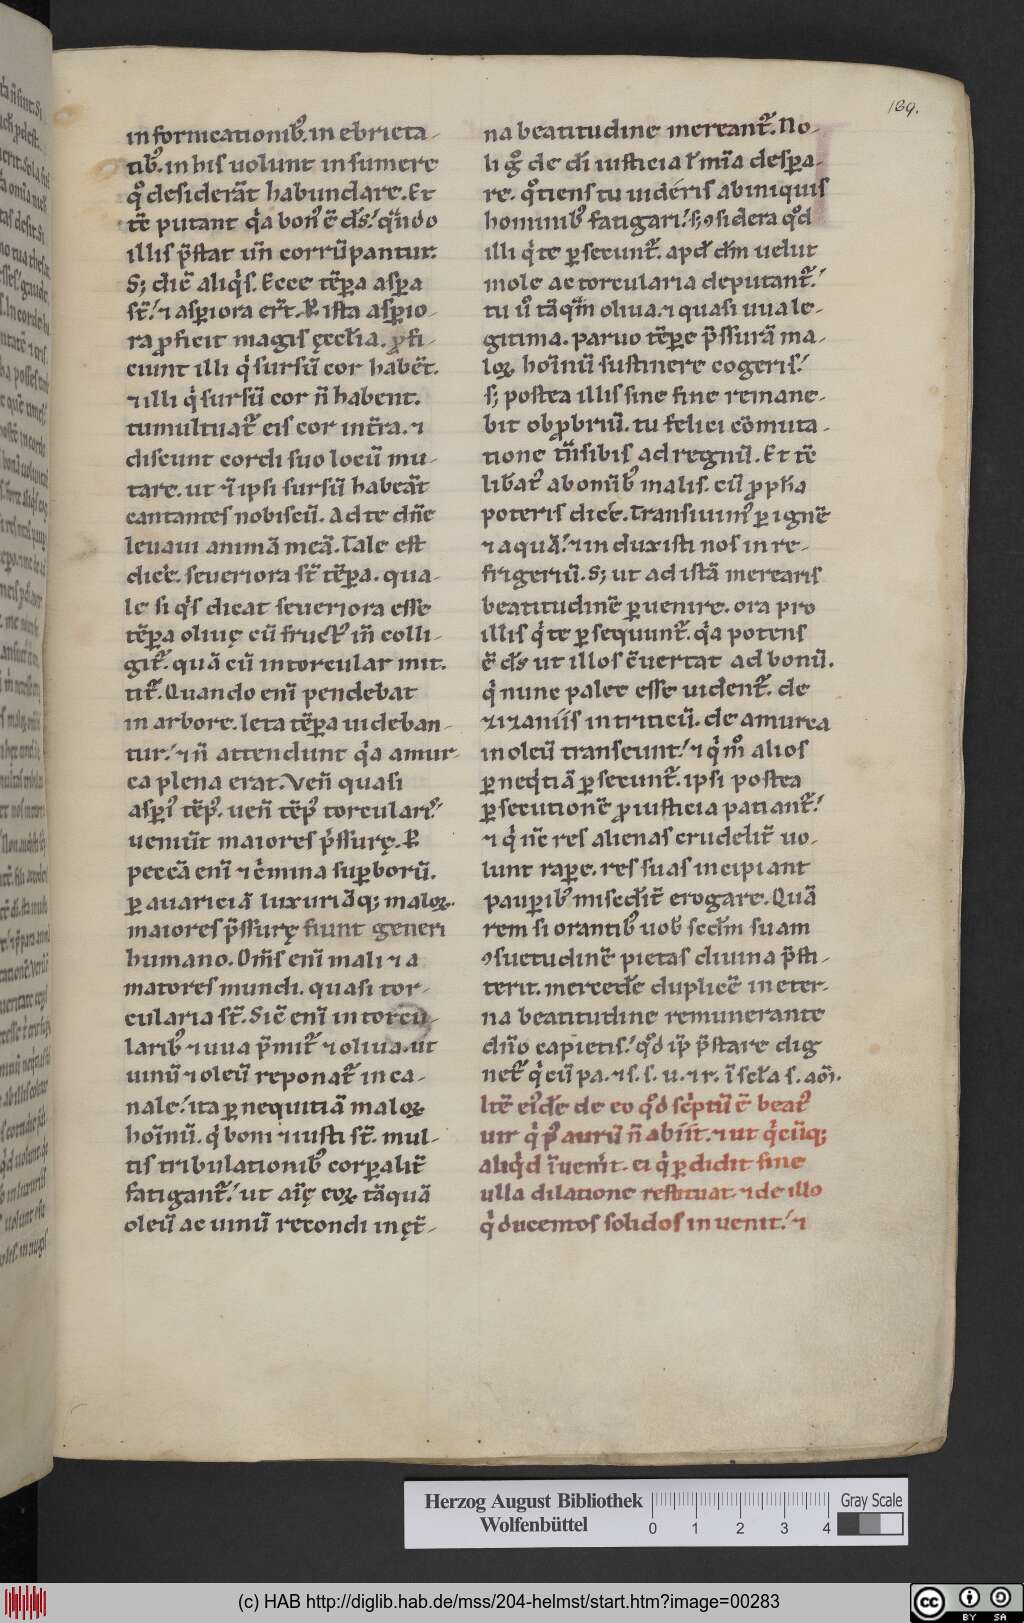 139.
in fornicationib᷒. in ebrieta-
tib᷒. in his uolunt insumere
qd᷒ desiderāt habundare. Et
tē putant qͥa bon᷒ ē dс̄. qn̄do
illis p̄stat un̄ corrūpantur.
S; dic̄ aliqͥs. Ecce tēꝑa asꝑa
st̄. ⁊ asꝑiora er̄t. R̵ ista asꝑio-
ra ꝓficit magis ęcclīa. ꝓfi-
ciunt illi qͥ sursū cor habēt.
⁊ illi qͥ sursū cor n̄ habent.
tumultuat᷑ eis cor int̄ra. ⁊
discunt cordi suo locū mu-
tare. ut ⁊ ipsi sursū habeāt
cantantes nobiscū. Ad te dn̄e
leuaui animā meā. Tale est
dicē. seueriora st̄ tēꝑa. qua-
le si qͥs dicat seueriora esse
tēꝑa oliuę cū fruct᷒ in̄ colli-
git᷑. quā cū in torcular mit-
tit᷑. Quando eni᷒ pendebat
in arbore. leta tēꝑa uideban-
tur. ⁊ n̄ attendunt qͥa amur-
ca plena erat. Ven̄ quasi
asꝑ᷒ tēp᷒. uen̄ tēp᷒ torculari᷒.
ueniūt maiores p̄ssurę. R̵
peccā eni᷒ ⁊ c̄mina suꝑborū.
ꝑ auariciā luxuriāq; maloꝝ.
maiores p̄ssurę fiunt generi
humano. Om̄s eni᷒ mali ⁊ a
matores mundi. quasi tor-
cularia st̄. Sic̄ eni᷒ in torcu-
larib᷒ ⁊ uua p̄mit᷑ ⁊ oliua. ut
uinū ⁊ oleū reponat᷑ in ca-
nale. ita ꝑ nequitiā maloꝝ
hoi᷒nū. qͥ boni ⁊ iusti st̄. mul-
tis tribulationib᷒ corꝑalit̄
fatigant᷑. ut aīę eoꝝ tāquā
oleū ac uinū recondi in ęt̄-
na beatitudine mereant᷑. No-
li gͦ de dī iusticia ł mīa despꝑa-
re. qͦtiens tu uideris ab iniquis
hominib᷒ fatigari. s; ꝯsidera qd᷒
illi qͥ te ꝑsecunt᷑. apd̄ dm̄ uelut
mole ac torcularia deputant᷑.
tu u᷒ tāqm̄ oliua. ⁊ quasi uua le-
gitima. paruo tēꝑe p̄ssurā ma-
loꝝ hoīnū sustinere cogeris.
s; postea illis sine fine remane-
bit obꝓbriū. tu felici cōmuta-
tione tn̄sibis ad regnū. Et tē
lib̄at᷒ ab omib᷒ malis. cū ꝓpha
poteris dicē. Transiuim᷒ ꝑ ignē
⁊ aquā. ⁊ induxisti nos in re-
frigeriū. S; ut ad istā merearis
beatitudinē ꝑuenire. ora pro
illis qͥ te ꝑsequunt᷑. qͥa potens
ē dс̄ ut illos c̄uertat ad bonū.
qͥ nunc palee esse uident᷑. de
zizaniis in triticū. de amurca
in oleū transeunt. ⁊ qͥ mͦ alios
ꝑ neqͥtiā ꝑsecunt᷑. ipsi postea
ꝑsecutionē ꝓ iusticia patiant᷑.
⁊ qͥ nc̄ res alienas crudelit̄ uo-
lunt raꝑe. res suas incipiant
pauꝑib᷒ misedit̄ erogare. Quā
rem si orantib᷒ uob᷒ scdm̄ suam
ꝯsuetudinē pietas diuina p̄sti-
terit. mercedē duplicē in eter-
na beatitudine remunerante
dn̄o capietis. qd᷒ ip̄ p̄stare dig
net᷑ qͥ cū pa. ⁊ s. s. u. ⁊ r. ī scla s. aōī.
Itē ei᷒dē de eo qd᷒ sc̄ptū ē beat᷒
uir qͥ p᷒ aurū n̄ abiit. ⁊ ut qͥcūq;
aliqͥd īuenīt. ei qͥ ꝑdidit sine
ulla dilatione restituat. ⁊ de illo
qͥ ducentos solidos inuenit. ⁊
Herzog August Bibliothek
Wolfenbüttel
0 1 2 3 4
Gray Scale
(c) HAB http://diglib.hab.de/mss/204-helmst/start.htm?image=00283
cc BY SA